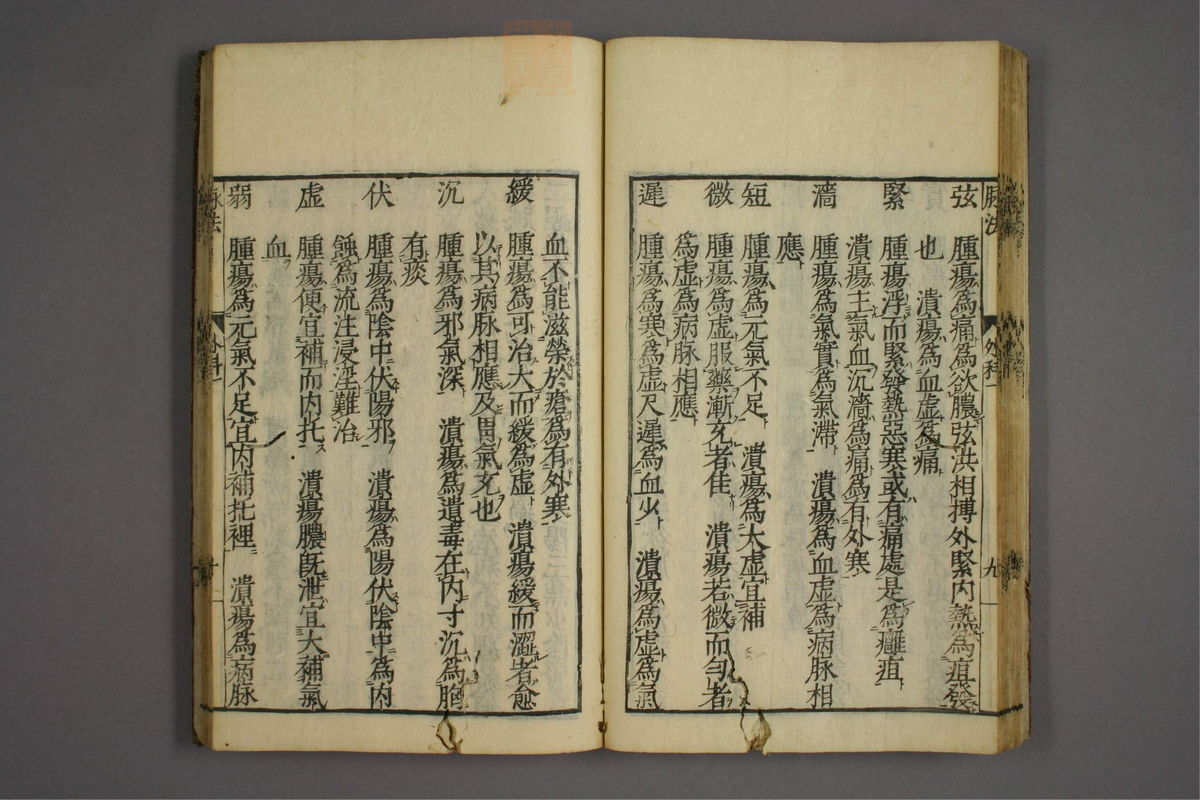 脉法 外科一 九
弦 腫瘍爲痛爲飲膿弦洪相搏外緊内熱爲疽發
也 潰瘍爲血虚爲痛
緊 腫瘍浮而緊發熱惡寒或有痛處是爲癰疽
潰瘍主氣血沉濇爲痛爲有外寒
濇 腫瘍爲氣實爲氣滞 潰瘍爲血虚爲病脉相
應
短 腫瘍爲元氣不足 潰瘍爲大虚宜補
微 腫瘍爲虚服藥漸充者佳 潰瘍若微而匀者
爲虚爲病脉相應
遲 腫瘍爲寒爲虚尺遲爲血少 潰瘍爲虚爲氣
血不能滋榮於瘡爲有外寒
緩 腫瘍爲可治大而緩爲虚 潰瘍緩而澀者愈
以其病脉相應及胃氣充也
沉 腫瘍爲邪氣深 潰瘍爲遺毒在内寸沉爲胸
有痰
伏 腫瘍爲陰中伏陽邪 潰瘍爲陽伏陰中爲内
蝕爲流注浸淫難治
虚 腫瘍便宜補而内托 潰瘍膿既泄宜大補氣
血
弱 腫瘍爲元氣不足宜内補托裡 潰瘍爲病脉
脉法 外科一 十